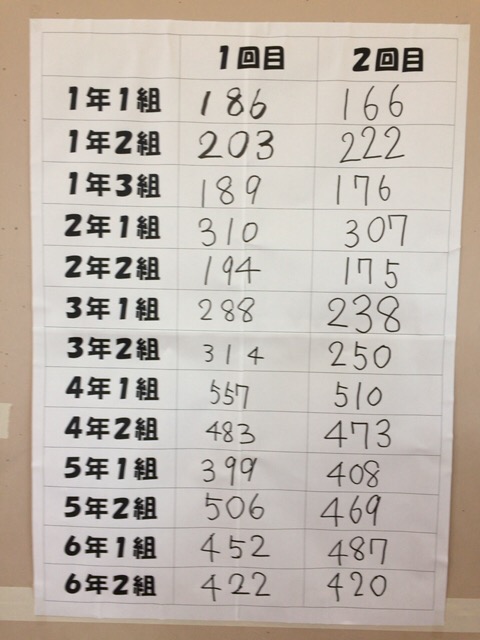 1回目 2回目
1年1組 186 166
1年2組 203 222
1年3組 189 176
2年1組 310 307
2年2組 194 175
3年1組 288 238
3年2組 314 250
4年1組 557 510
4年2組 483 473
5年1組 399 408
5年2組 506 469
6年1組 452 487
6年2組 422 420